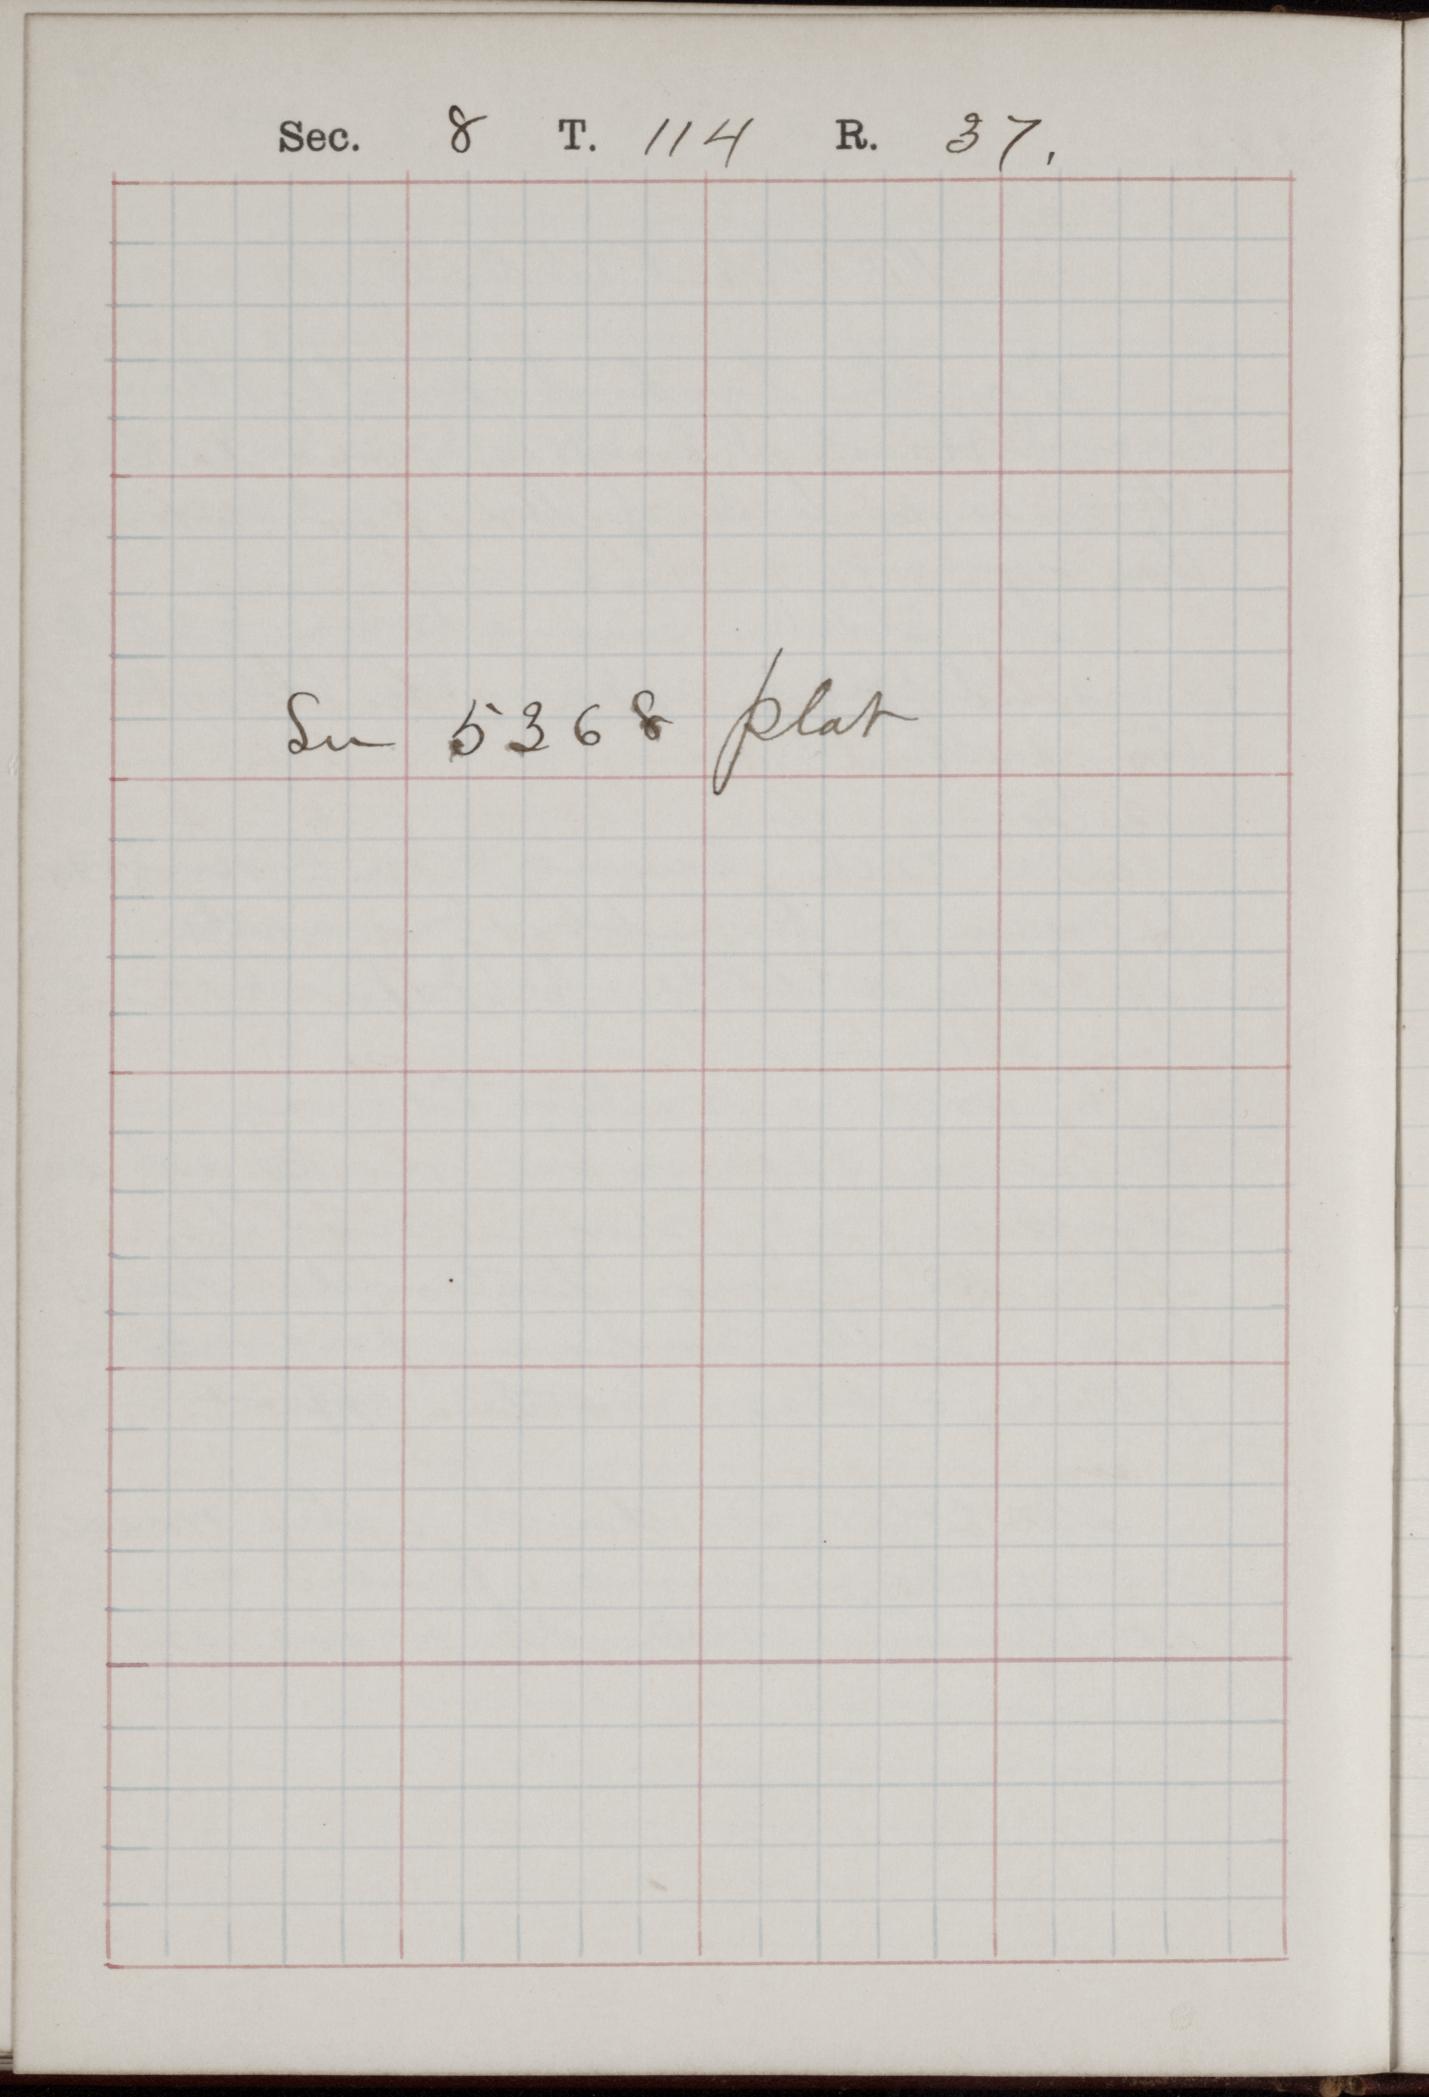 Sec. 8 T. 114 R. 37.
See 5368 plat